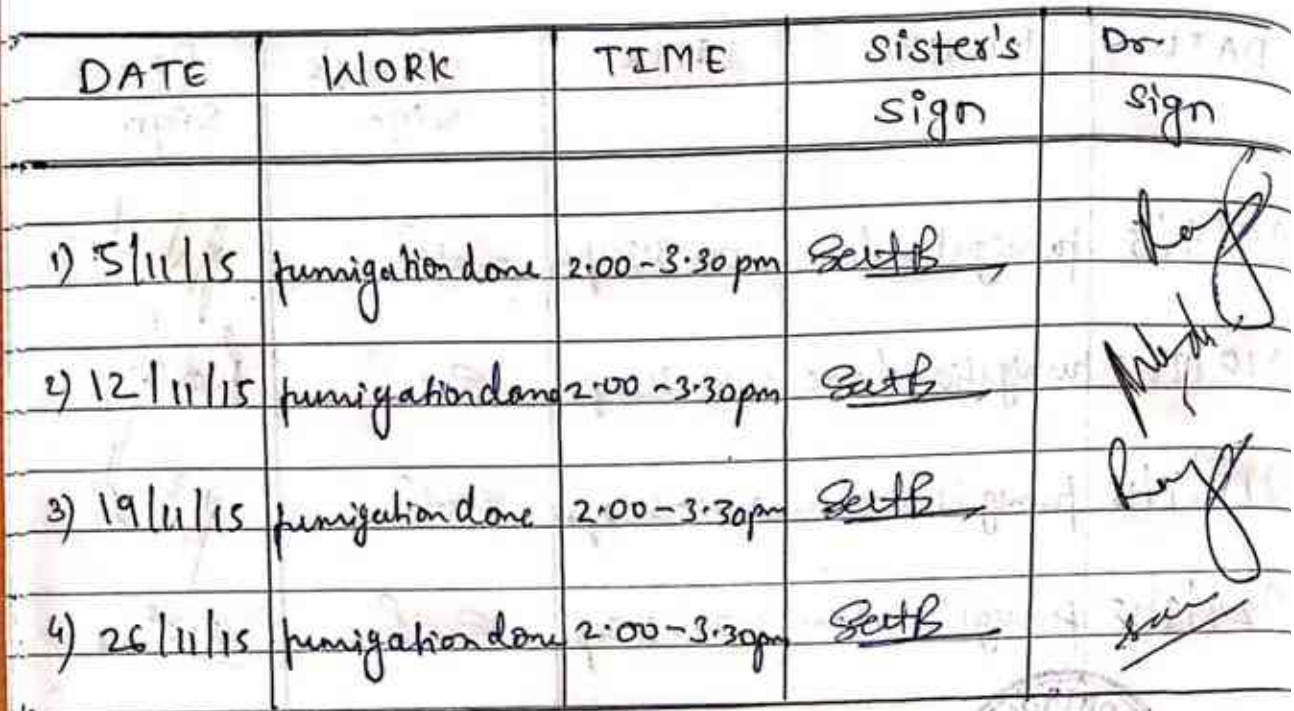 DATE WORK TIME Sister's Dr.
sign sign
1) 5/11/15 fumigation done 2.00-3.30 pm
2) 12/11/15 fumigation done 2.00-3.30pm
3) 19/11/15 fumigation done 2.00-3.30pm
4) 26/11/15 fumigation done 2.00-3.30pm